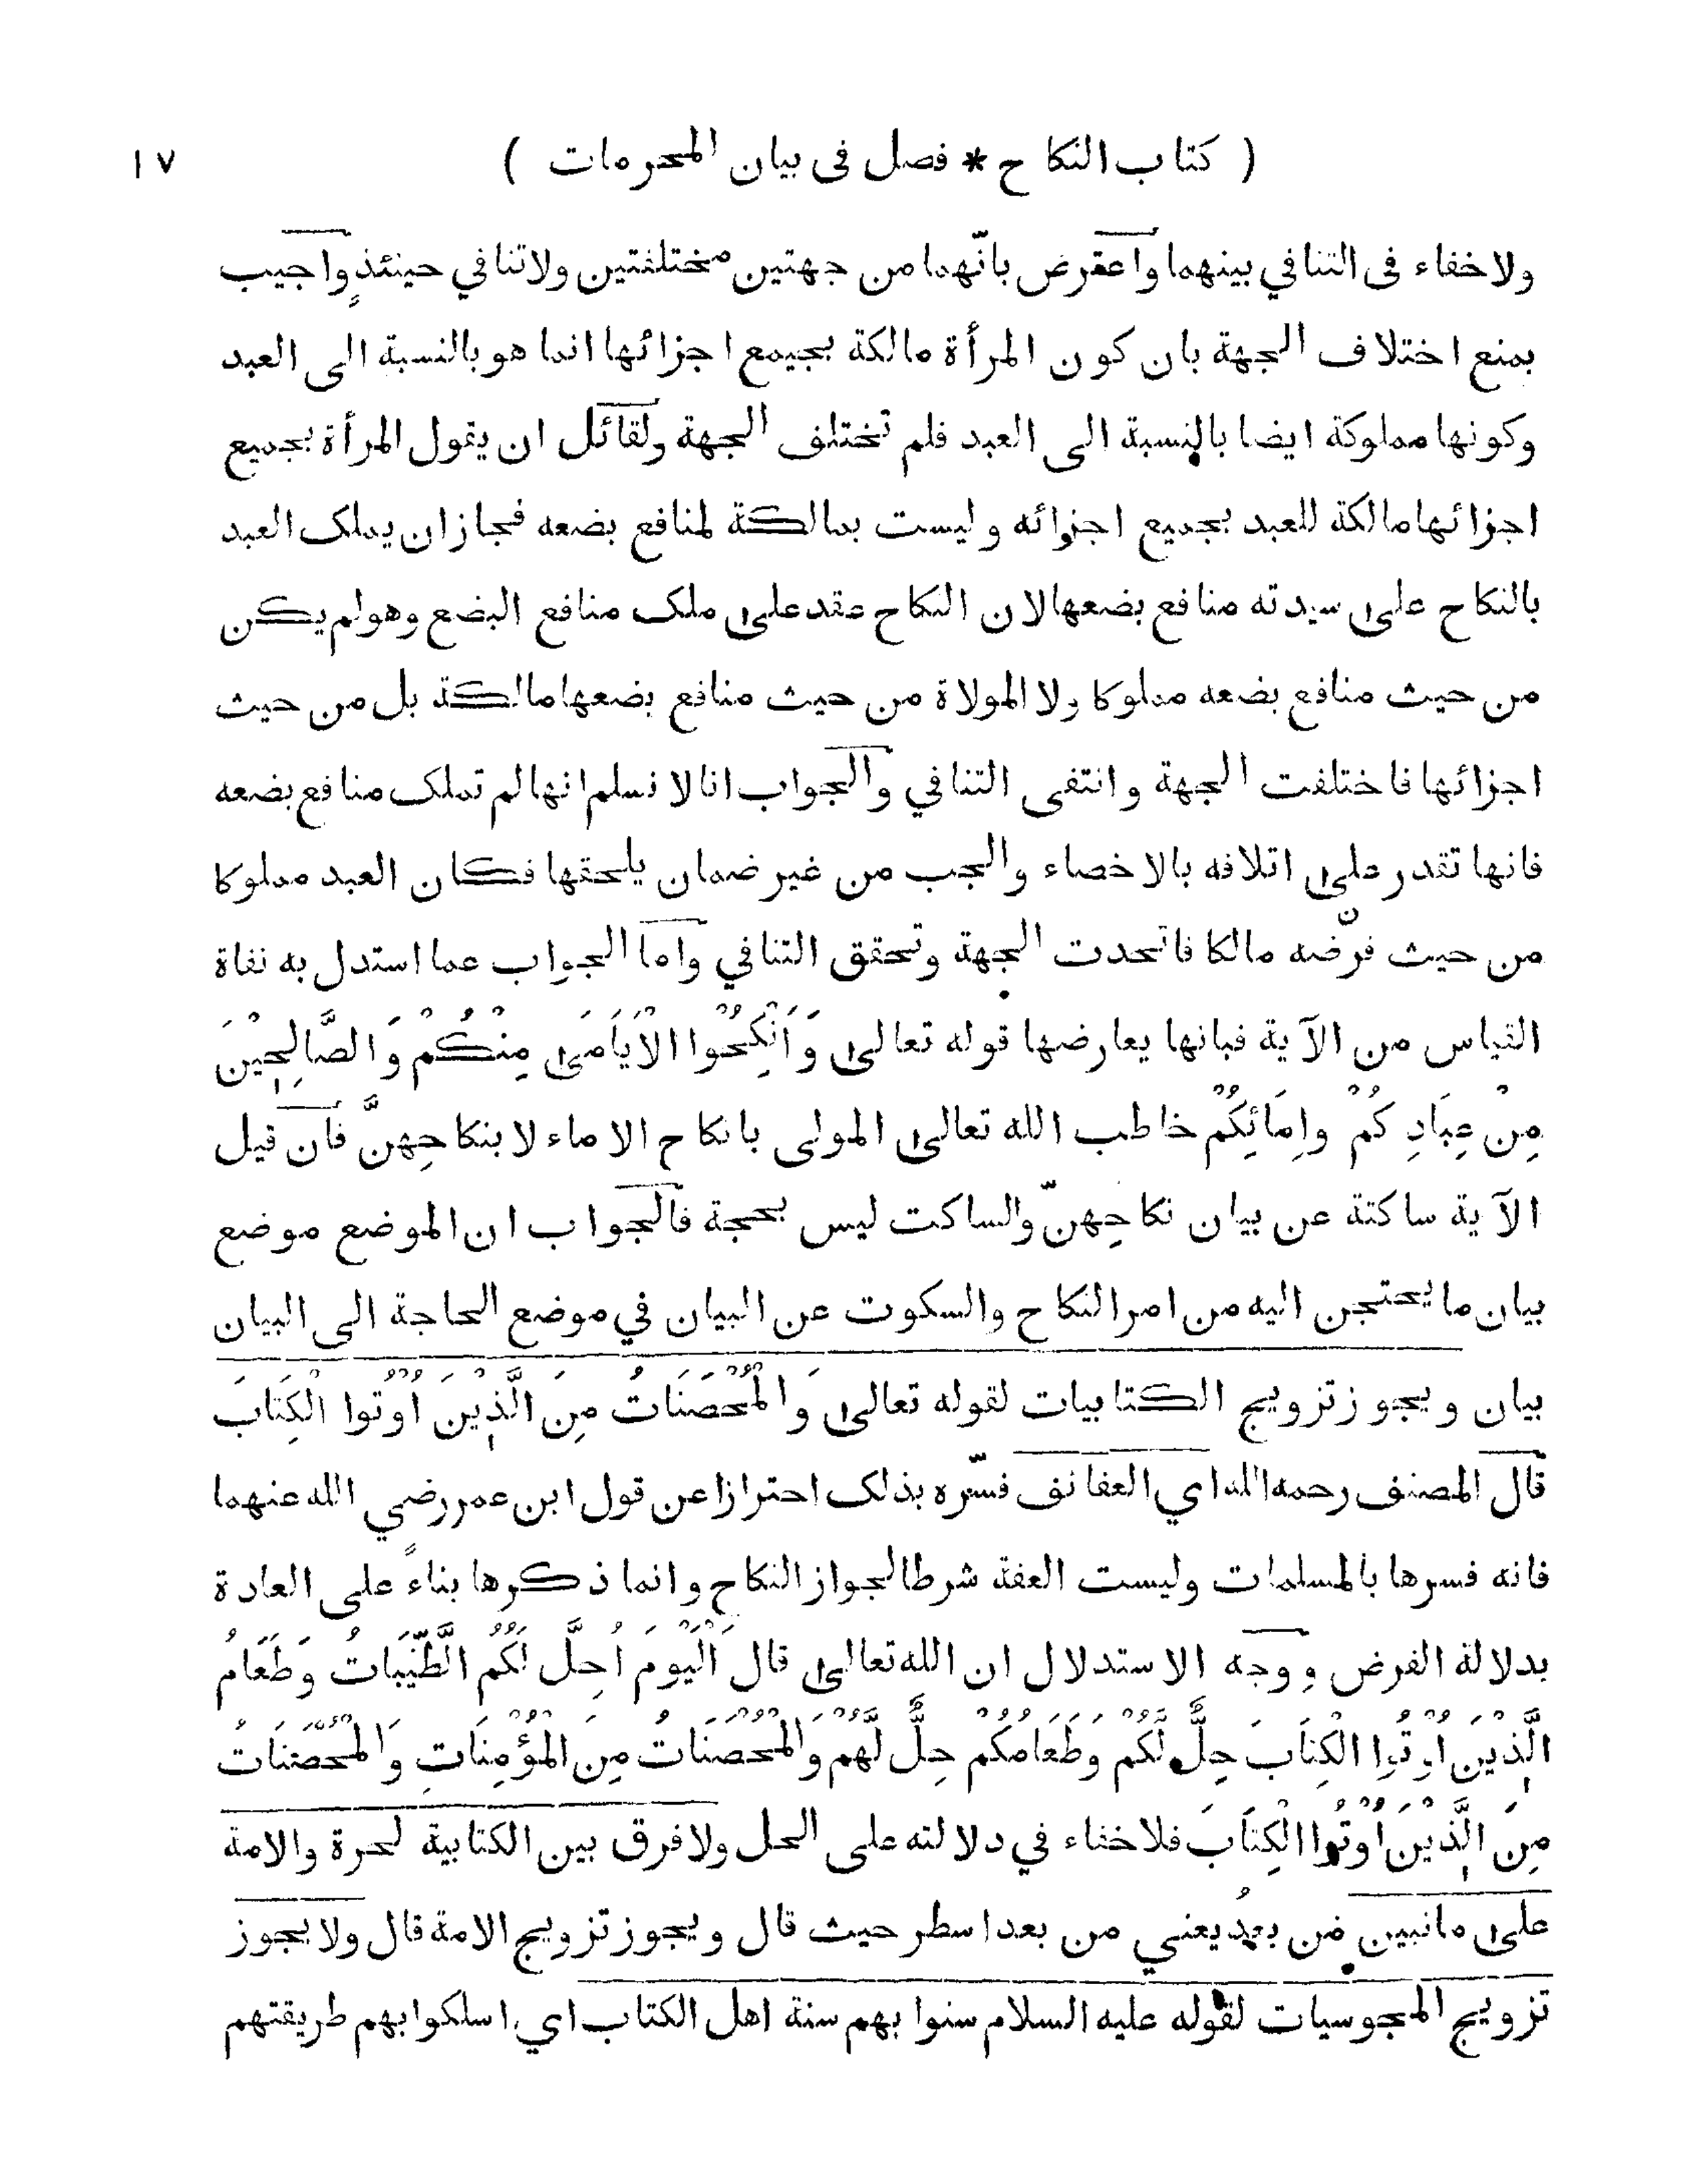 ( كتاب النكاح * فصل فى بيان المحرمات ) ١٧
ولاخفاء فى التنافي بينهما واعترض بانّهما من جهتين مختلفتين ولاتنافي حينئذٍ واجيب
بمنع اختلاف الجهة بان كون المرأة مالكة بجميع اجزائها انما هو بالنسبة الى العبد
وكونها مملوكة ايضا بالنسبة الى العبد فلم تختلف الجهة ولقائل ان يقول المرأة بجميع
اجزائها مالكة للعبد بجميع اجزائه وليست بمالكة لمنافع بضعه فجاز ان يملك العبد
بالنكاح على سيدته منافع بضعها لان النكاح عقد على ملك منافع البضع وهولم يكن
من حيث منافع بضعه مملوكا ولا المولاة من حيث منافع بضعها مالكة بل من حيث
اجزائها فاختلفت الجهة وانتفى التنافي والجواب انا لا نسلم انها لم تملك منافع بضعه
فانها تقدر على اتلافه بالاخصاء والجب من غير ضمان يلحقها فكان العبد مملوكا
من حيث فرّضه مالكا فاتحدت الجهة وتحقق التنافي واما الجواب عما استدل به نفاة
القياس من الآية فبانها يعارضها قوله تعالى وَأَنْكِحُوا الْأَيَامَى مِنْكُمْ وَالصَّالِحِيْنَ
مِنْ عِبَادِكُمْ وإِمَائِكُمْ خاطب الله تعالى المولى بانكاح الاماء لا بنكاحِهنَّ فان قيل
الآية ساكتة عن بيان نكاحِهنّ والساكت ليس بحجة فالجواب ان الموضع موضع
بيان ما يحتجن اليه من امر النكاح والسكوت عن البيان في موضع الحاجة الى البيان
بيان ويجوز تزويج الكتابيات لقوله تعالى وَالْمُحْصَنَاتُ مِنَ الَّذِيْنَ أُوْتُوا الْكِتَابَ
قال المصنف رحمه الله اي العفائف فسّره بذلك احترازا عن قول ابن عمر رضي الله عنهما
فانه فسرها بالمسلمات وليست العفة شرطا لجواز النكاح وانما ذكرها بناءً على العادة
بدلالة الفرض ووجه الاستدلال ان الله تعالى قال اَلْيَوْمَ اُحِلَّ لَكُمُ الطَّيِّبَاتُ وَطَعَامُ
الَّذِيْنَ اُوْتُوا الْكِتَابَ حِلٌّ لَكُمْ وَطَعَامُكُمْ حِلٌّ لَّهُمْ وَالْمُحْصَنَاتُ مِنَ الْمُؤْمِنَاتِ وَالْمُحْصَنَاتُ
مِنَ الَّذِيْنَ أُوْتُوا الْكِتَابَ فلاخفاء في دلالته على الحل ولافرق بين الكتابية لحرة والامة
على مانبين من بعدُ يعني من بعد اسطر حيث قال ويجوز تزويج الامة قال ولا يجوز
تزويج المجوسيات لقوله عليه السلام سنوا بهم سنة اهل الكتاب اي اسلكوا بهم طريقتهم